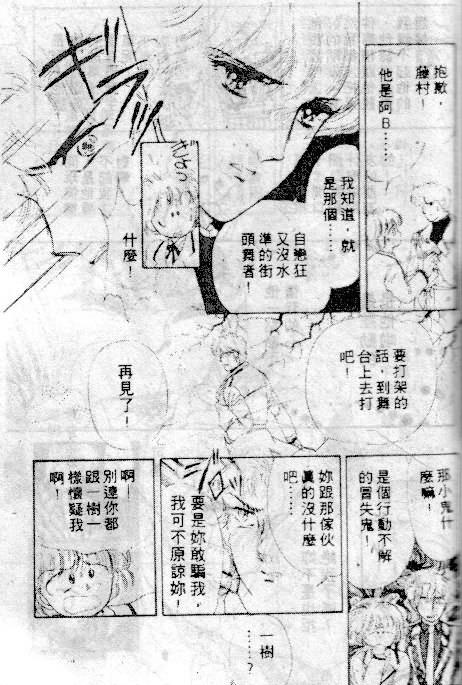 抱歉，
藤村！
他是阿B……
我知道，就
是那個……
自戀狂
又沒水
準的街
頭舞者！
ぎょっ
ギ
什麼！
要打架的
話，到舞
台上去打
吧！
再見了！
那小鬼什
麼嘛！
是個行動不解
的冒失鬼！
妳跟那傢伙
真的沒什麼
吧……
要是妳敢騙我，
我可不原諒妳！
一樹
……？
啊！
別達你都
跟一樹一
樣懷疑我
啊！